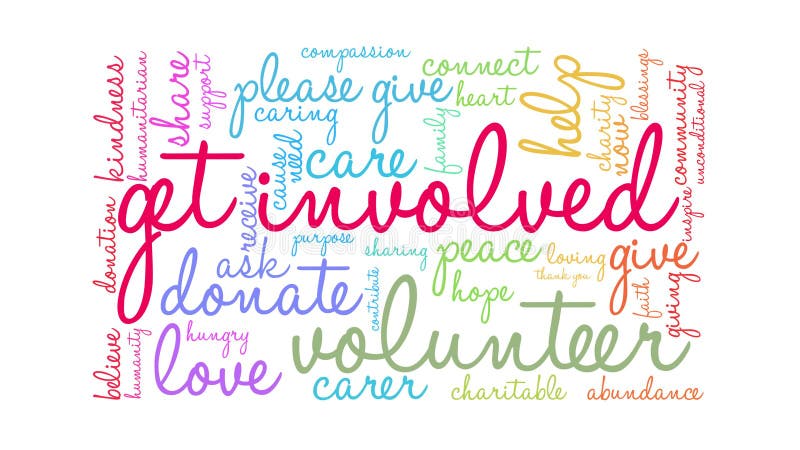 compassion
connect
please give
heart
caring
help
blessings
kindness
humanitarian
share
support
family
charity
now
community
unconditional
cause
need
care
get involved
receive
purpose
sharing
peace
loving
thank you
give
inspire
donation
ask
donate
contribute
hope
faith
giving
volunteer
believe
humanity
hungry
love
carer
charitable
abundance